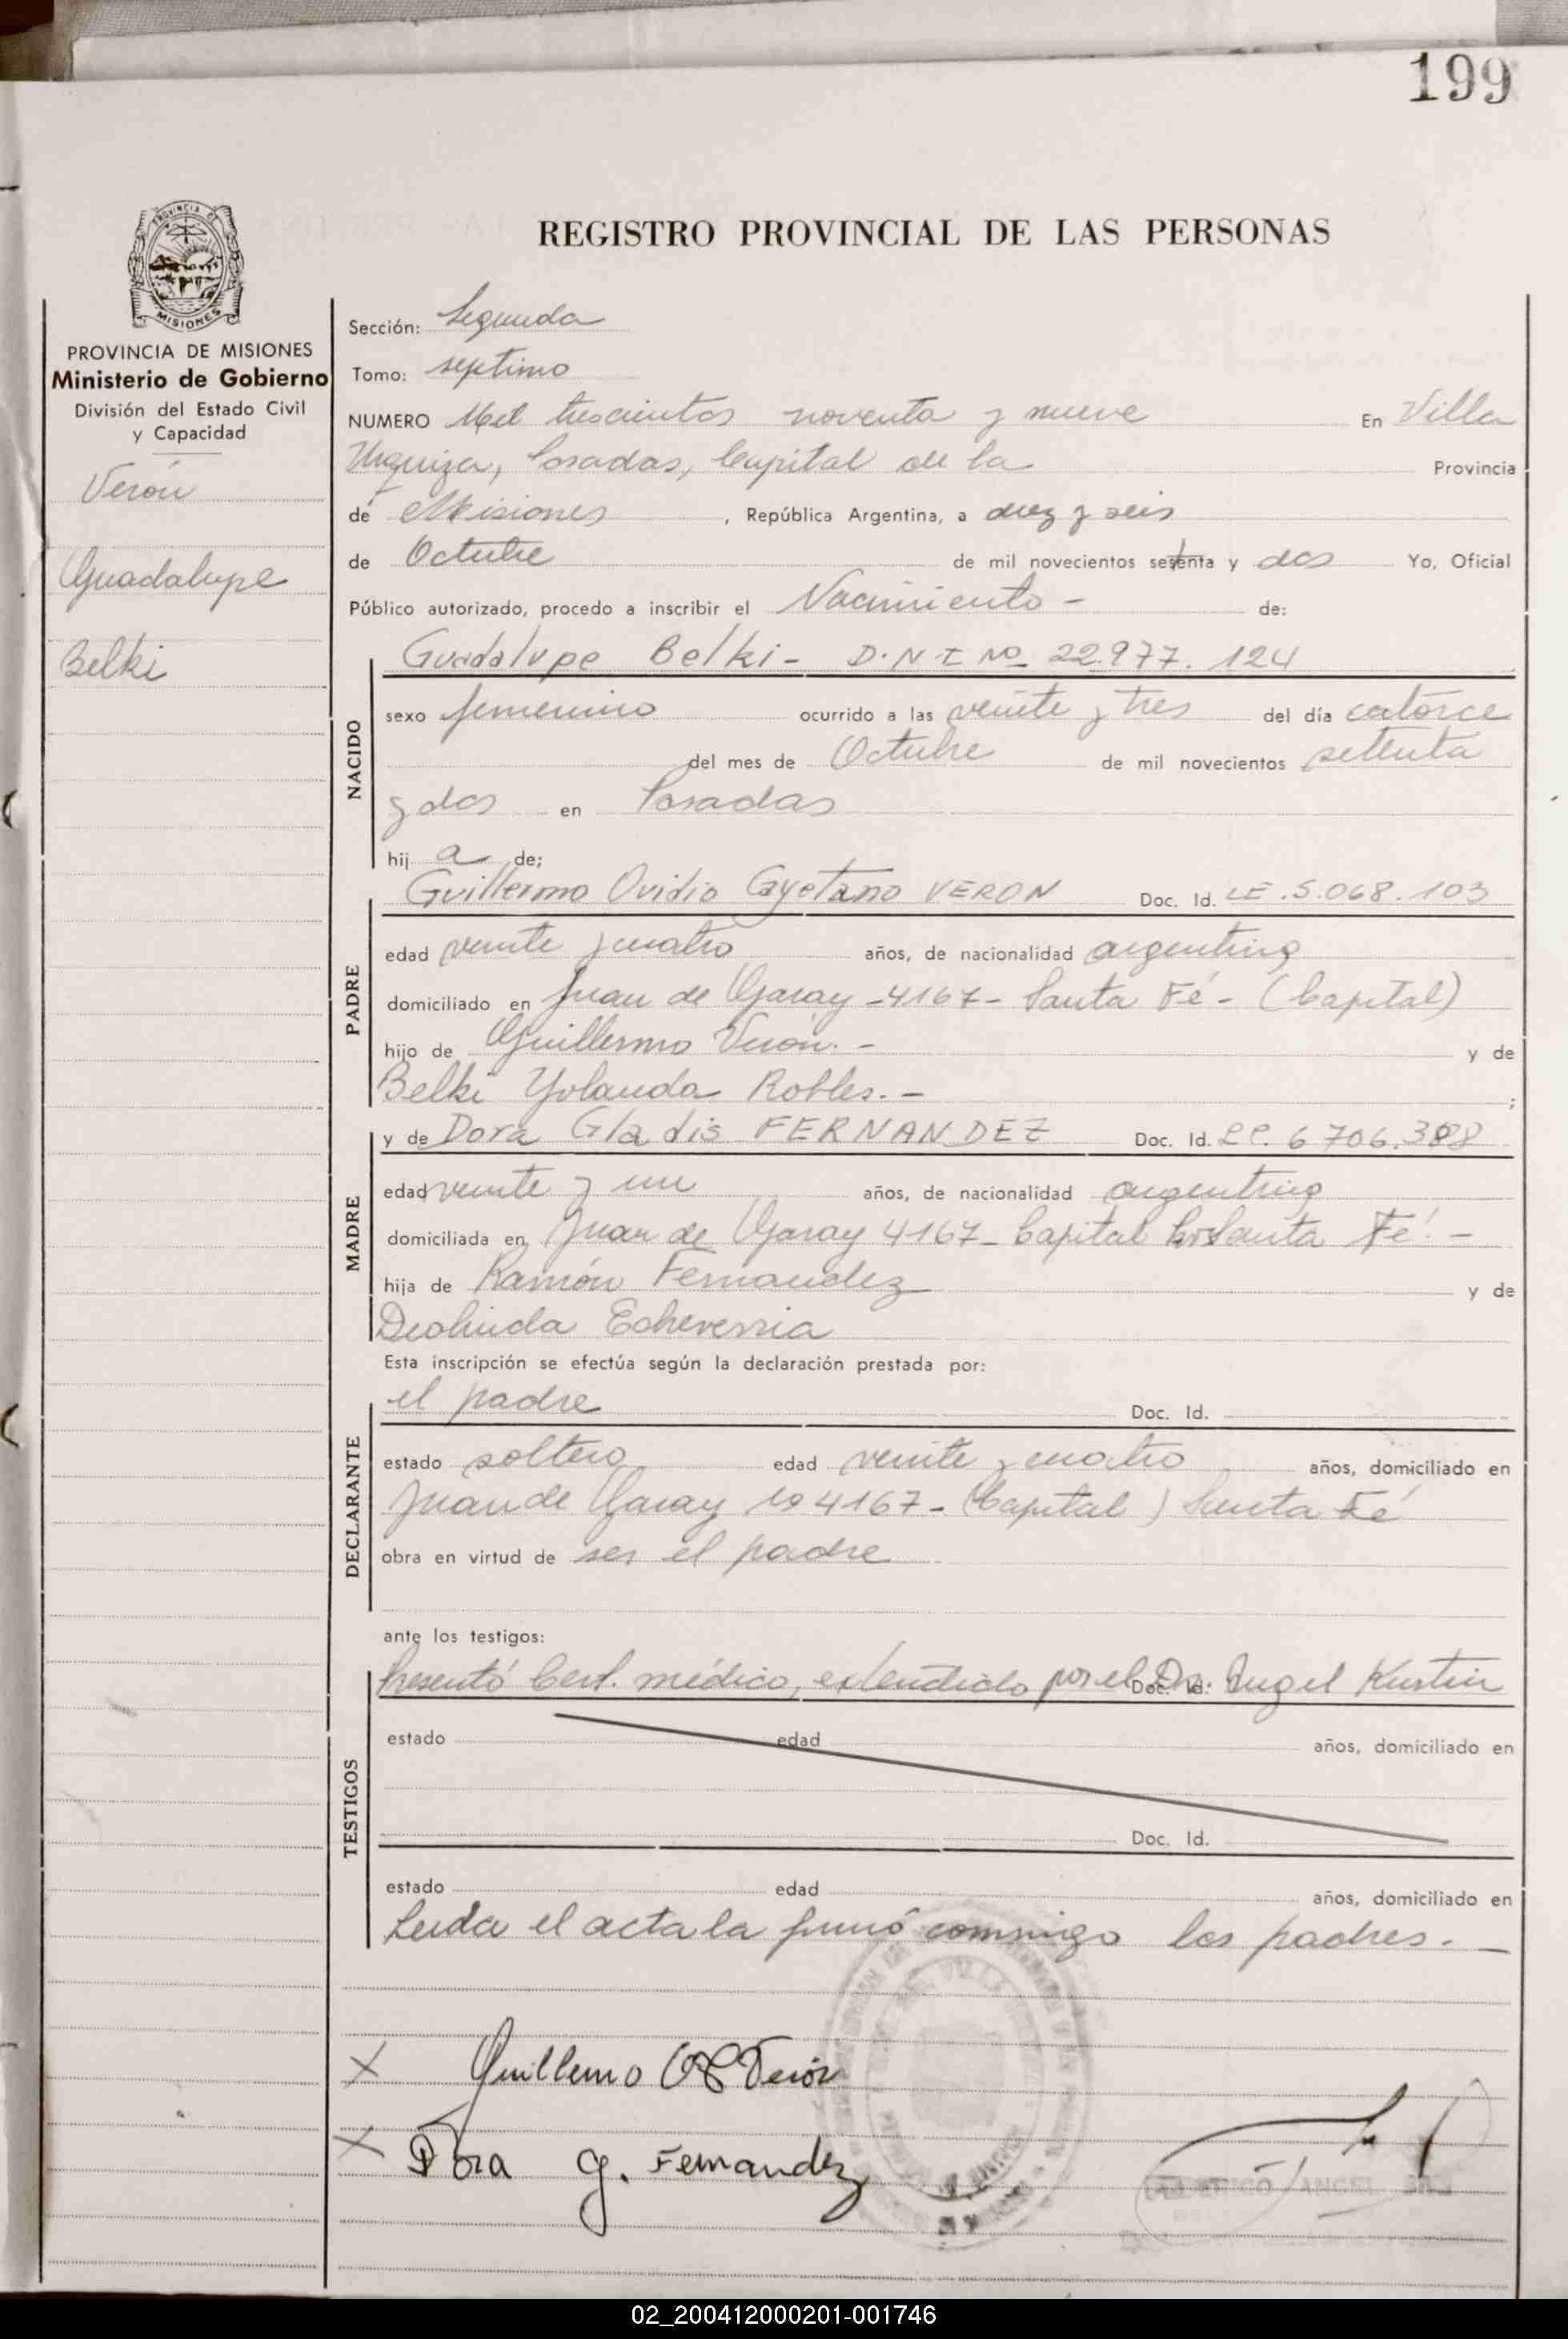 199
PROVINCIA DE
MISIONES
REGISTRO PROVINCIAL DE LAS PERSONAS
PROVINCIA DE MISIONES
Ministerio de Gobierno
División del Estado Civil
y Capacidad
Verón
Guadalupe
Belki
Sección: Segunda
Tomo: septimo
NUMERO Mil trescientos noventa y nueve En Villa
Urquiza, Posadas, Capital de la Provincia
de Misiones, República Argentina, a diez y seis
de Octubre de mil novecientos setenta y dos Yo, Oficial
Público autorizado, procedo a inscribir el Nacimiento - de:
NACIDO
Guadalupe Belki - D.N.I Nº 22.977.124
sexo femenino ocurrido a las veinte y tres del día catorce
del mes de Octubre de mil novecientos setenta
y dos en Posadas
hij a de;
PADRE
Guillermo Ovidio Cayetano VERON Doc. Id. LE.5.068.103
edad veinte y cuatro años, de nacionalidad argentina
domiciliado en Juan de Garay -4167- Santa Fé - (Capital)
hijo de Guillermo Verón. - y de
Belki Yolanda Robles. - ;
MADRE
y de Dora Gladis FERNANDEZ Doc. Id. LC. 6706.388
edad veinte y un años, de nacionalidad argentina
domiciliada en Juan de Garay 4167- Capital Santa Fé! -
hija de Ramón Fernandez y de
Deolinda Echeverria
Esta inscripción se efectúa según la declaración prestada por:
DECLARANTE
el padre Doc. Id.
estado soltero edad veinte y cuatro años, domiciliado en
Juan de Garay Nº 4167 - (Capital) Santa Fé
obra en virtud de ser el padre
ante los testigos:
TESTIGOS
Presentó Cert. médico, extendido por el Doc. Id. Dr. Angel Kustin
estado edad años, domiciliado en
Doc. Id.
estado edad años, domiciliado en
Leida el acta la firmó conmigo los padres. -
X Guillermo O C Verón
X Dora G. Fernandez
ANGEL
02_200412000201-001746